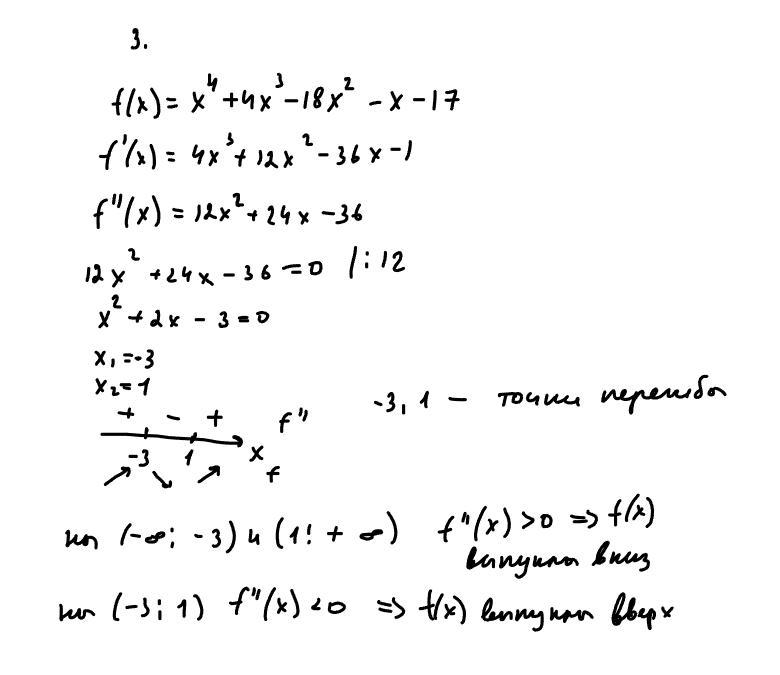 3.
f(x) = x⁴ + 4x³ - 18x² - x - 17
f'(x) = 4x³ + 12x² - 36x - 1
f''(x) = 12x² + 24x - 36
12x² + 24x - 36 = 0 /: 12
x² + 2x - 3 = 0
x₁ = -3
x₂ = 1
-3, 1 — точки перегиба
+ - + f''
-3 1 x
f
на (-∞; -3) и (1; +∞) f''(x) > 0 => f(x)
выпукла вниз
на (-3; 1) f''(x) < 0 => f(x) выпукла вверх